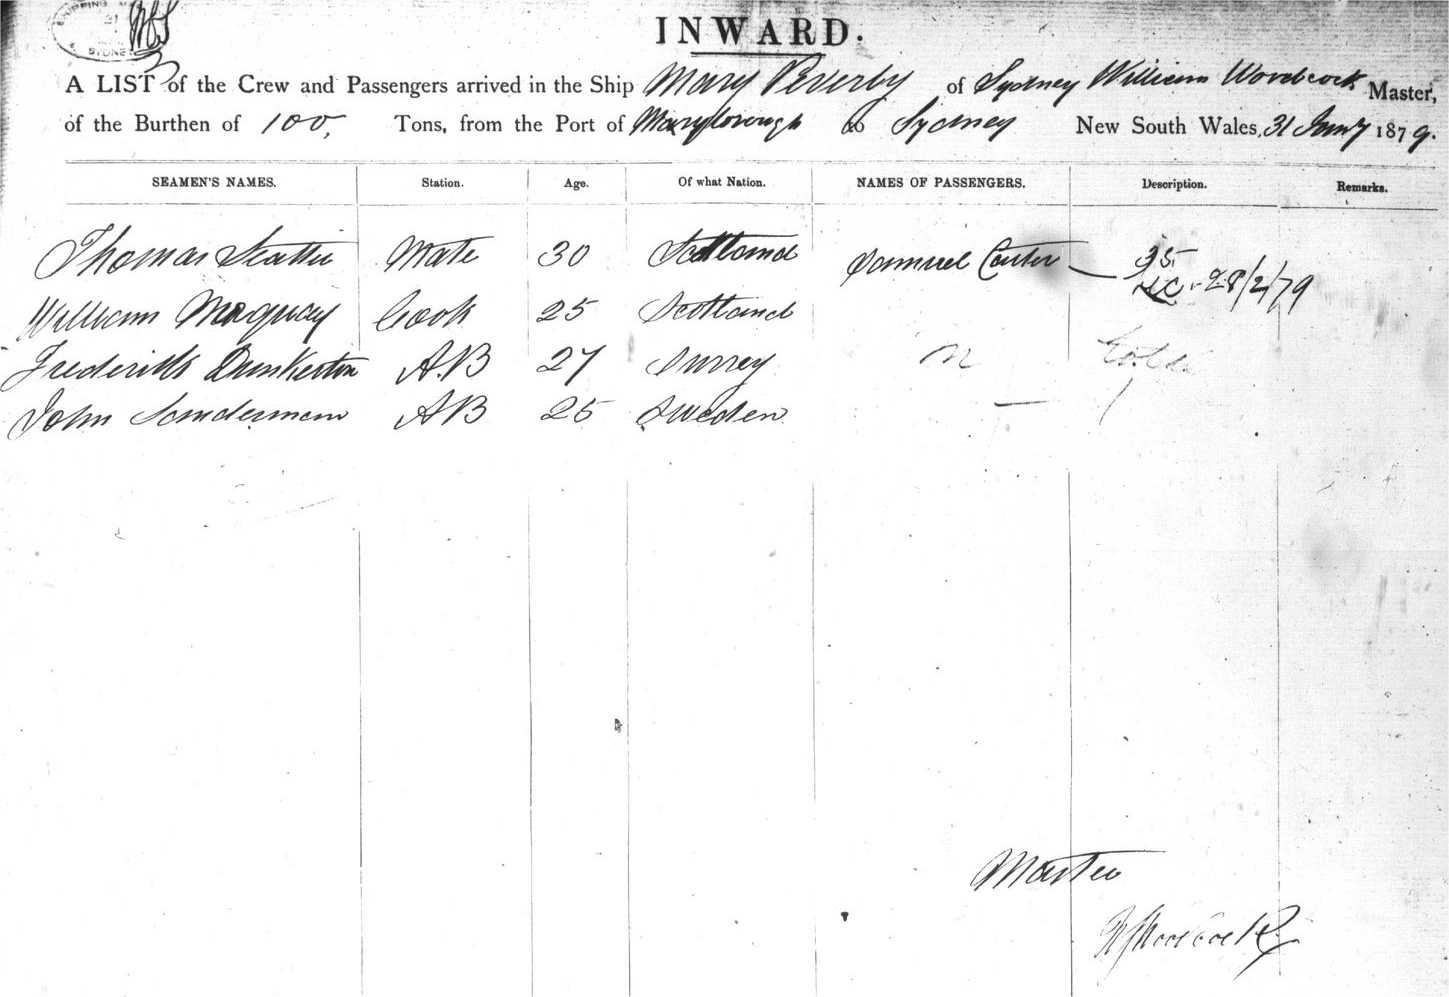 SYDNEY
INWARD.
A LIST of the Crew and Passengers arrived in the Ship Mary Peverly of Sydney William Woodcock Master,
of the Burthen of 100, Tons, from the Port of Maryborough to Sydney New South Wales, 31 Jany 1879.
SEAMEN'S NAMES. Station. Age. Of what Nation. NAMES OF PASSENGERS. Description. Remarks.
Thomas Mate 30 Scotland Samuel Carter 35
28/2/79
William Maquay Cook 25 Scotland
Frederick Dunkerton A.B 27 Surrey
John Sanderman AB 25 Sweden
Master
Woodcock